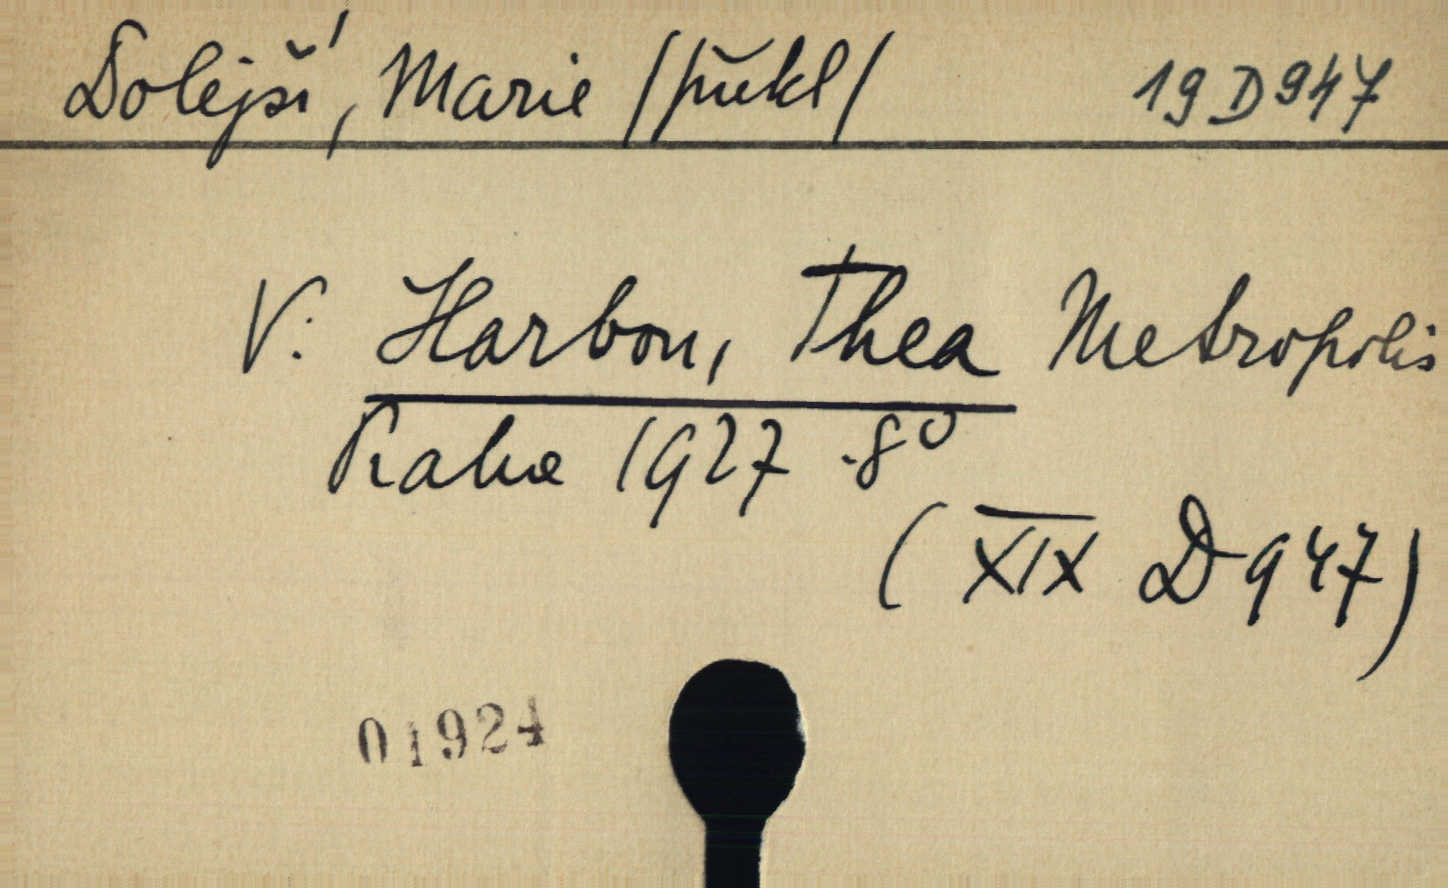 Dolejší, Marie /překl/ 19 D 947
V: Harbou, Thea Metropolis
Praha 1927 .8°
( XIX D 947)
01924